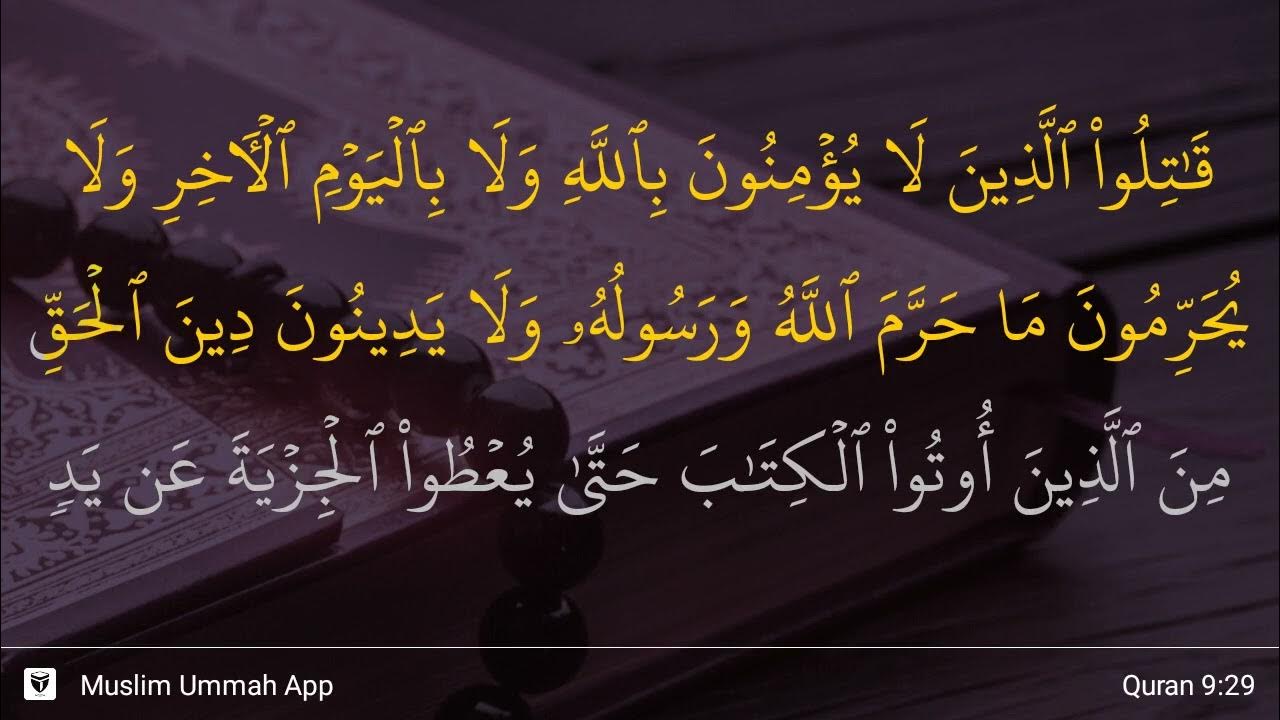 قَـٰتِلُوا۟ ٱلَّذِينَ لَا يُؤْمِنُونَ بِٱللَّهِ وَلَا بِٱلْيَوْمِ ٱلْـَٔاخِرِ وَلَا
يُحَرِّمُونَ مَا حَرَّمَ ٱللَّهُ وَرَسُولُهُۥ وَلَا يَدِينُونَ دِينَ ٱلْحَقِّ
مِنَ ٱلَّذِينَ أُوتُوا۟ ٱلْكِتَـٰبَ حَتَّىٰ يُعْطُوا۟ ٱلْجِزْيَةَ عَن يَدٍ
Muslim Ummah App
Quran 9:29